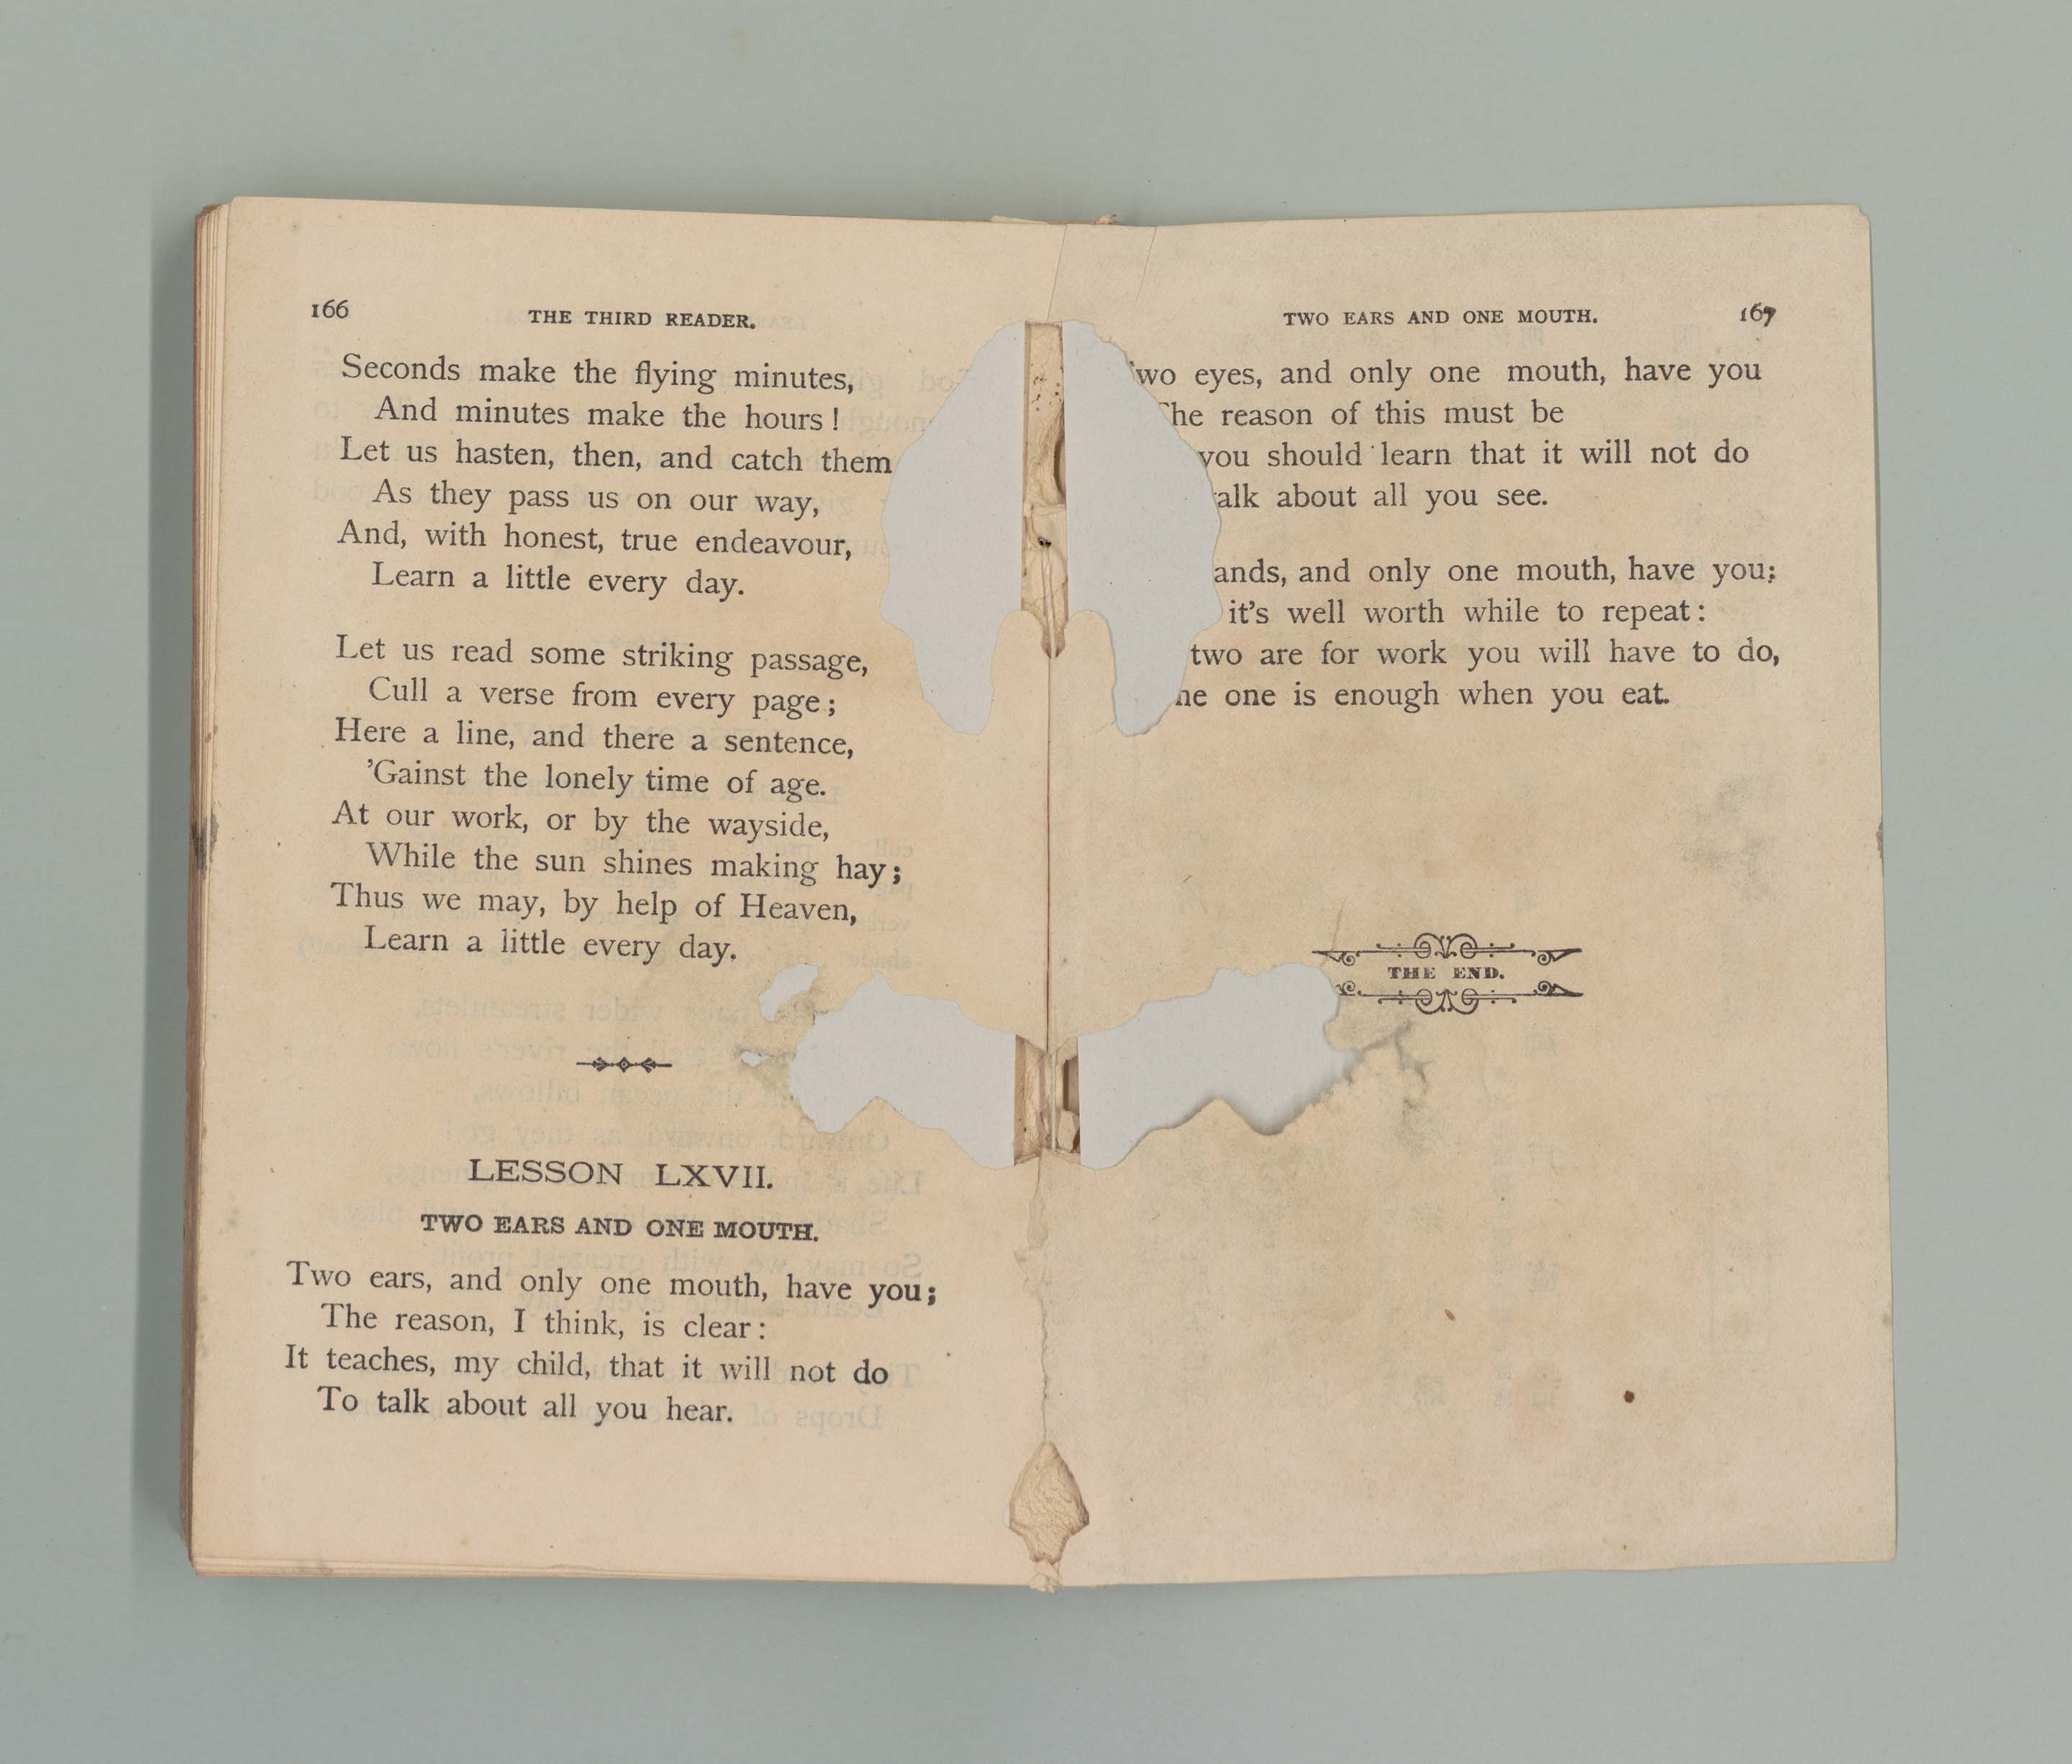 166 THE THIRD READER.
Seconds make the flying minutes,
And minutes make the hours!
Let us hasten, then, and catch them
As they pass us on our way,
And, with honest, true endeavour,
Learn a little every day.
Let us read some striking passage,
Cull a verse from every page;
Here a line, and there a sentence,
'Gainst the lonely time of age.
At our work, or by the wayside,
While the sun shines making hay;
Thus we may, by help of Heaven,
Learn a little every day.
LESSON LXVII.
TWO EARS AND ONE MOUTH.
Two ears, and only one mouth, have you;
The reason, I think, is clear:
It teaches, my child, that it will not do
To talk about all you hear.
TWO EARS AND ONE MOUTH. 167
wo eyes, and only one mouth, have you
The reason of this must be
you should learn that it will not do
talk about all you see.
ands, and only one mouth, have you;
it's well worth while to repeat:
two are for work you will have to do,
he one is enough when you eat.
THE END.